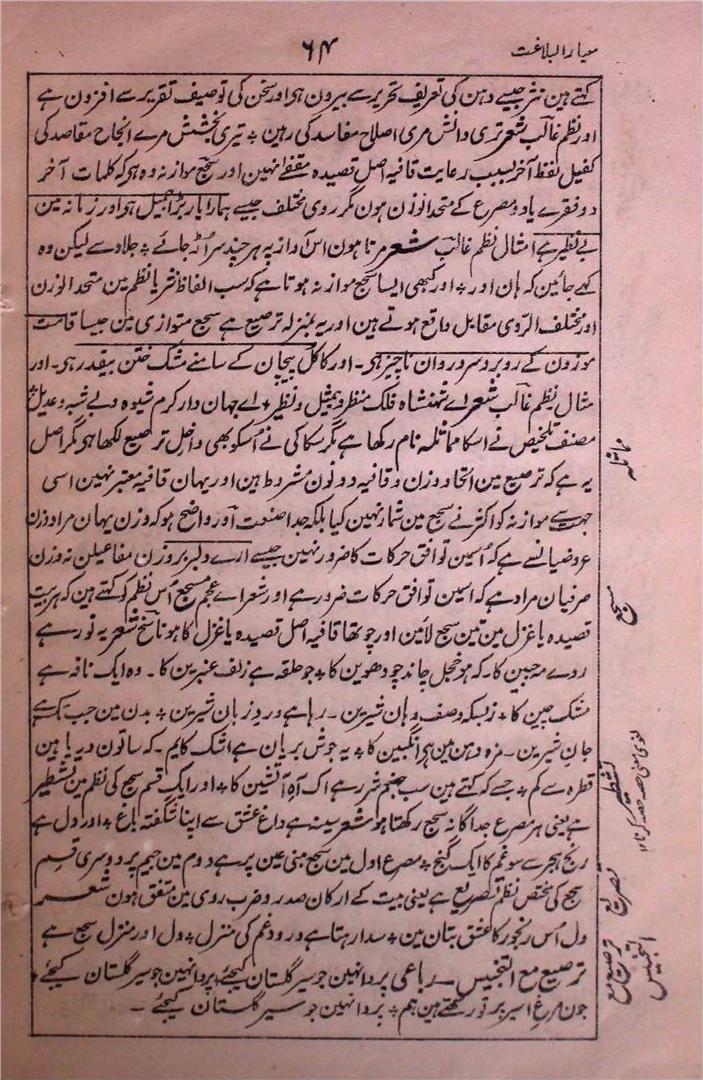 معیار البلاغت
۶۴
کہتے ہین نثر جیسے دہن کی تعریف تحریر سے بیرون ہی اور سخن کی توصیف تقریر سے افزون ہے
اور نظم غالب شعر تری دانش مری اصلاح مفاسد کی رہین ٭ تیری بخشش مرے انجاح مقاصد کی
کفیل لفظ آخر بسبب رعایت قافیہ اصل قصیدہ مقفے نہین اور سجع موازنہ وہ ہو کہ کلمات آخر
دو فقرے یا دو مصرع کے متحد الوزن ہون مگر روی مختلف جیسے ہمارا یار بڑا جمیل ہی اور زمانہ مین
بے نظیر ہے امثال نظم غالب شعر مرتا ہون اس آواز پہ ہر چند سر اُڑ جائے ٭ جلاد سے لیکن وہ
کہے جائین کہ ہان اور ٭ اور کبھی ایسا سجع موازنہ ہوتا ہے کہ سب الفاظ نثر یا نظم مین متحد الوزن
اور مختلف الروی مقابل واقع ہوتے ہین اور یہ بمنزلہ ترصیع ہے سجع متوازی مین جیسا قامت
موزون کے روبرو سرو روان ناچیز ہی ۔ اور کاکل پیچان کے سامنے مشک ختن بیقدر ہی ۔ اور
مثال نظم غالب شعر اے شہنشاہ فلک منظر و بیمثل و نظیر ٭ اے جہان دار کرم شیوہ و بے شبہ و عدیل
مصنف تلخیص نے اسکا مماثلہ نام رکھا ہے مگر سکاکی نے اُسکو بھی داخل ترصیع لکھا ہی مگر اصل
یہ ہے کہ ترصیع مین اتحاد وزن و قافیہ دونون مشروط ہین اور یہان قافیہ معتبر نہین اسی
جہت سے موازنہ کو اکثر نے سجع مین شمار نہین کیا بلکہ جدا صنعت اور واضح ہو کہ وزن یہان مراد وزن
عروضیا نسے ہے کہ اُسمین توافق حرکات کا ضرور نہین جیسے ارے دلبر بروزن مفاعیلن نہ وزن
صرفیان مراد ہے کہ اسمین توافق حرکات ضرور ہے اور شعراے عجم مسجع اُس نظم کو کہتے ہین کہ ہر بیت
قصیدہ یا غزل مین تین سجع لائین اور چوتھا قافیہ اصل قصیدہ یا غزل کا ہو ناسخ شعر یہ نور ہے
روے مہ جبین کا ۔ کہ ہو خجل چاند چودھوین کا ٭ جو حلقہ ہے زلف عنبرین کا ۔ وہ ایک نافہ ہے
مشک چین کا ٭ زبسکہ وصف دہان شیرین ۔ رہا ہے ورد زبان شیرین ٭ بدن مین جب تک ہے
جان شیرین ۔ مزہ دہن مین ہی انگبین کا ٭ یہ جوش پر یان ہے اشک کا یم ۔ کہ ساتون دریا ہین
قطرہ سے کم ٭ جسے کہ کہتے ہین سب جہنم شرر ہے اک آہ آتشین کا ٭ اور ایک قسم سجع کی نظم مین تشطیر
ہے یعنی ہر مصرع جداگانہ سجع رکھتا ہو شعر سینہ ہے داغ عشق سے اپنا شگفتہ باغ ٭ اور دل ہے
رنج ہجر سے سو غم کا ایک گنج ٭ مصرع اول مین سجع مبنی غین پر ہے دوم مین جیم پر دوسری قسم
سجع کی مختص نظم تصریع ہے یعنی بیت کے ارکان صدر و ضرب روی مین متفق ہون شعر
دل اُس رنجور کا عشق بتان مین ٭ سدا رہتا ہے درد و غم کی منزل ٭ دل اور منزل سجع ہے
ترصیع مع التجنیس ۔ رباعی پروا نہین جو سیر گلستان کیجئے ٭ پر وا نہین جو سیر گلستان کیجئے ٭
جون مرغ اسیر پر تو رکھتے ہین ہم ٭ پروا نہین جو سیر گلستان کیجئے ۔
مماثلہ
مسجع
تشطیر
لغوی معنی حصہ حصہ کرنا ۱۲
تصریع
ترصیع مع
التجنیس